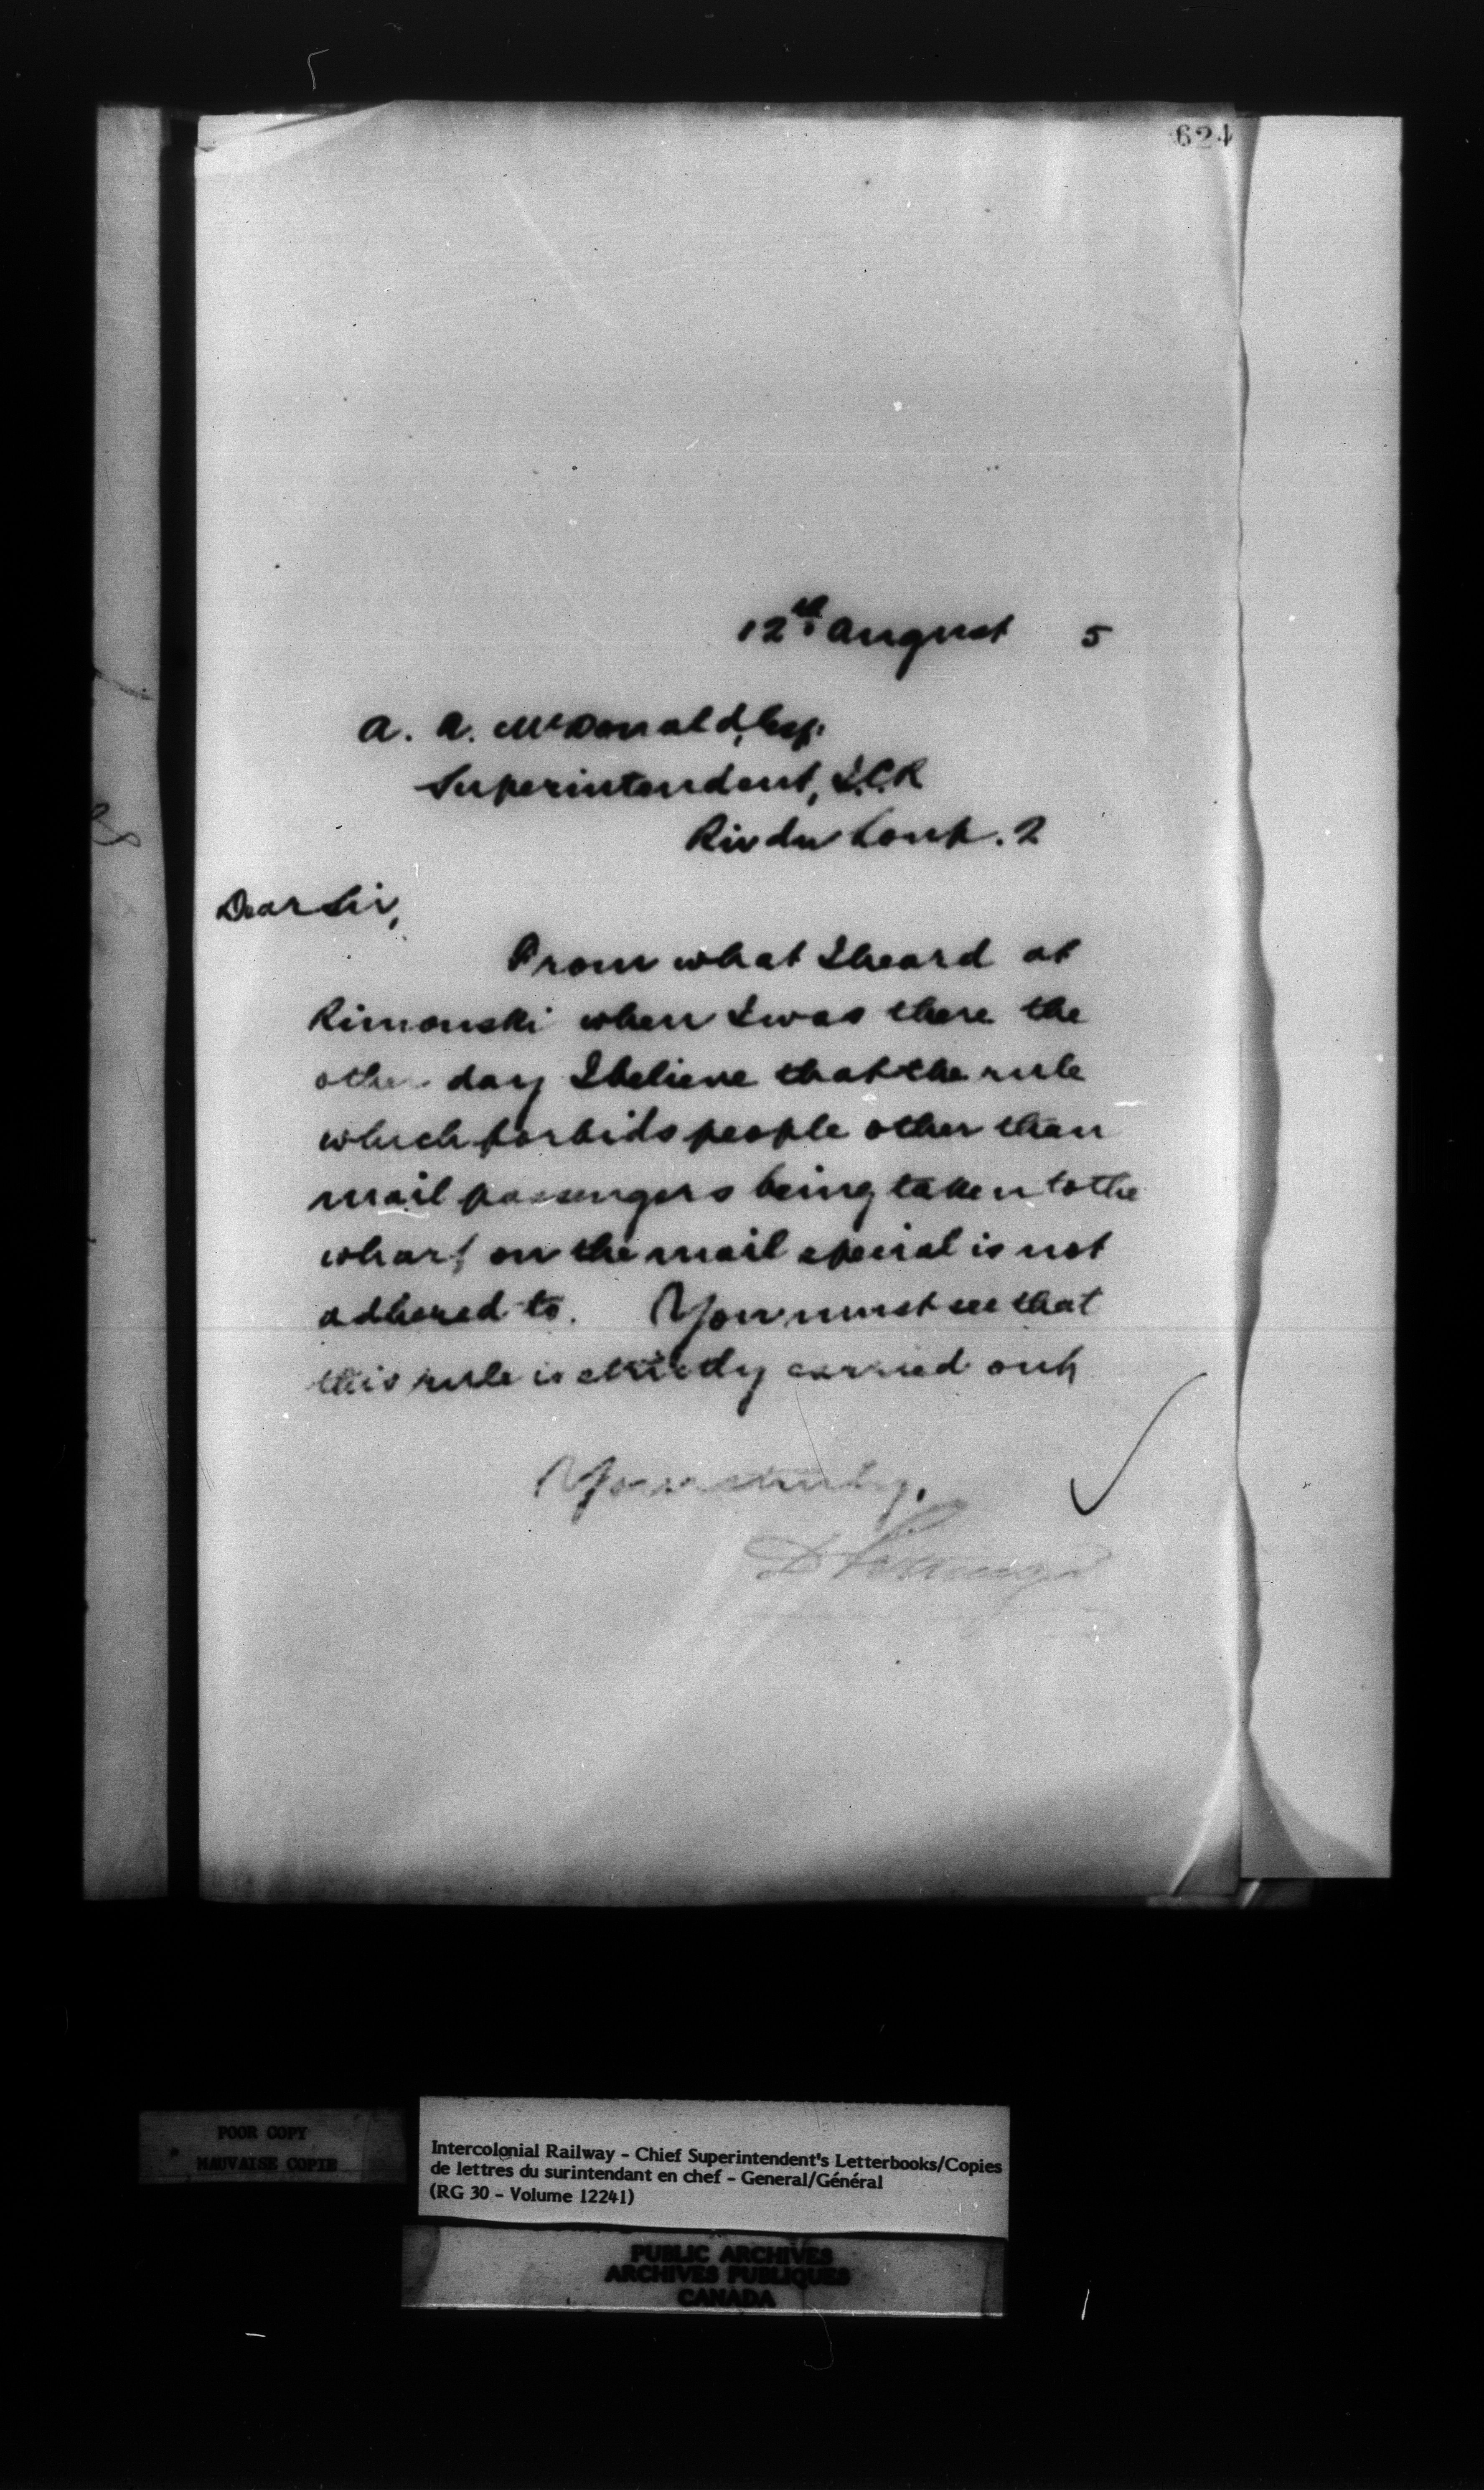 624
12th August 5
A. A. McDonald, Esq.
Superintendent, I.C.R
Riv du Loup. 2
Dear Sir,
From what I heard at
Rimouski when I was there the
other day I believe that the rule
which forbids people other than
mail passengers being taken to the
wharf on the mail special is not
adhered to. You must see that
this rule is strictly carried out
Yours truly,
POOR COPY
MAUVAISE COPIE
Intercolonial Railway - Chief Superintendent's Letterbooks/Copies
de lettres du surintendant en chef - General/Général
(RG 30 - Volume 12241)
PUBLIC ARCHIVES
ARCHIVES PUBLIQUES
CANADA